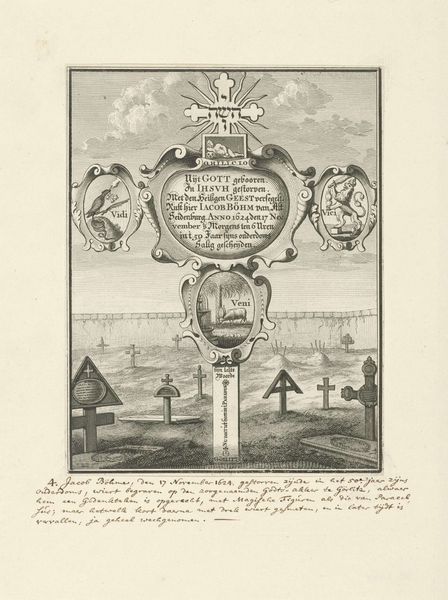 Uijt GOTT gebooren
In IHSVH gestorven.
Met den Heiligen GEEST versegelt
Rust hier IACOB BÖHM van Alt
Seidenburg. ANNO 1624 den 17 No
vember 's Morgens ten 6 Uren
in't 50 Jaar sijns ouderdoms
Salig gescheijden
Vidi
Vici
Veni
Sijn leste
Woorde
A. Jacob Böhme, den 17 November 1624. gestorven zijnde in het 50e Jaar zijns
Ouderdoms, wiert begraven op den zoogenaamden Gods-akker te Görlitz, alwaar
hem een Gedenkteken is opgerecht, met Magische Figuren als die van Paracel
sus; maar hetwelk kort daarna met drek wiert gesmeten, en in later tijdt is
vervallen, ja geheel wechgenomen.